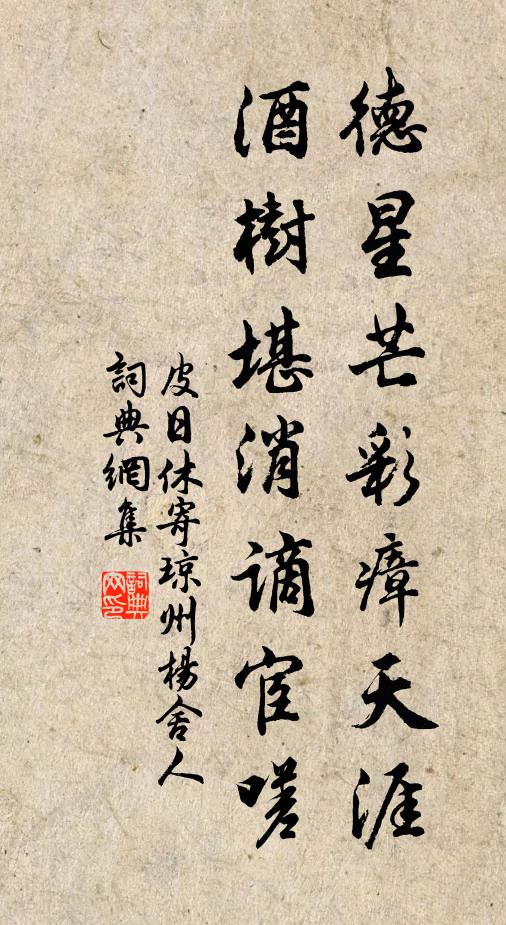 德星芒彩瘴天涯
酒樹堪消謫宦嗟
皮日休寄琼州楊舍人
詞典網集
詞典
网印